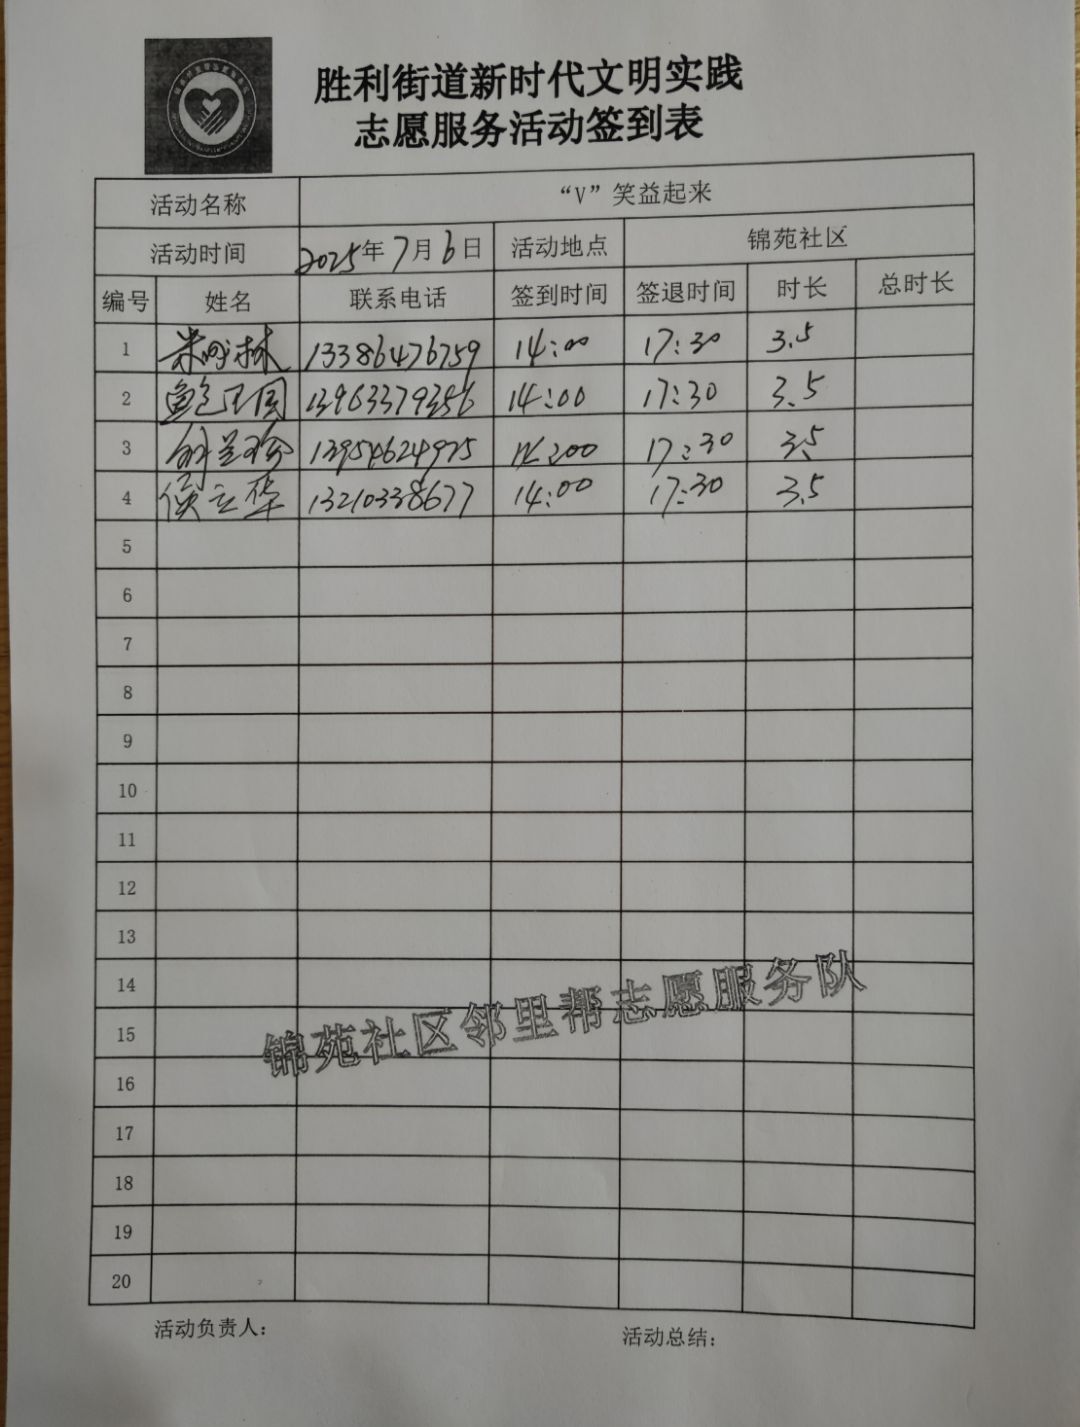 胜利街道新时代文明实践
志愿服务活动签到表
活动名称 “V”笑益起来
活动时间 2025年7月6日 活动地点 锦苑社区
编号 姓名 联系电话 签到时间 签退时间 时长 总时长
1 林 13386476759 14:00 17:30 3.5
2 鲍卫国 13963379356 14:00 17:30 3.5
3 13954624975 14:00 17:30 3.5
4 侯立华 13210338677 14:00 17:30 3.5
5
6
7
8
9
10
11
12
13
14
锦苑社区邻里帮志愿服务队
15
16
17
18
19
20
活动负责人: 活动总结: